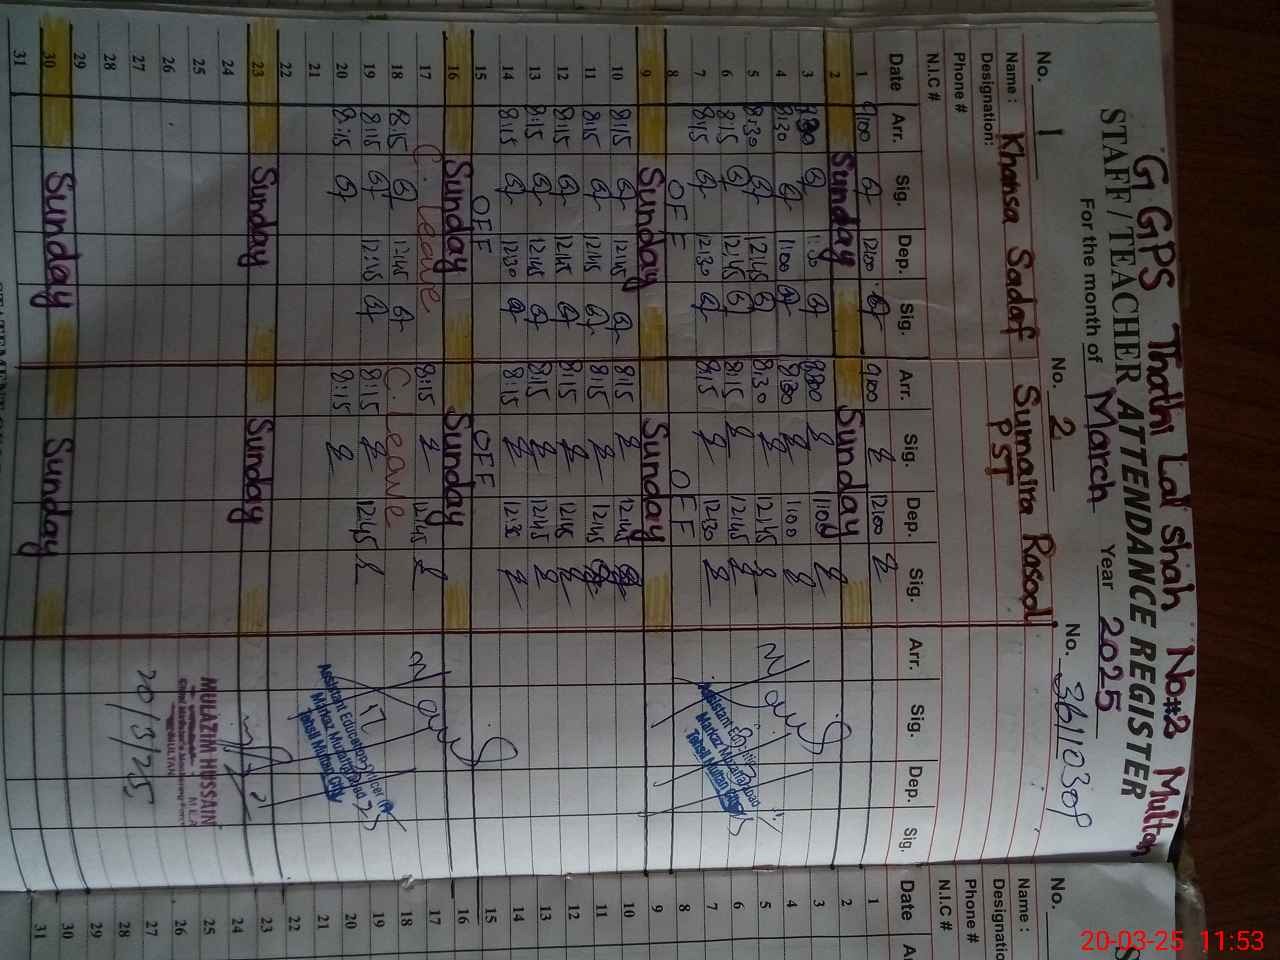 G GPS Thathi Lal Shah No#2 Multan
STAFF / TEACHER ATTENDANCE REGISTER
For the month of March Year 2025
No. 1 No. 2 No. 36110309
Name : Khansa Sadaf Sumaira Rasool
Designation: PST
Phone #
N.I.C #
Date Arr. Sig. Dep. Sig. Arr. Sig. Dep. Sig. Arr. Sig. Dep. Sig.
1 9:00 12:00 9:00 12:00
2 Sunday Sunday
3
4 8:30 1:00 8:30 1:00
5 8:30 12:45 8:30 12:45
6 8:15 12:45 8:15 12:45
7 8:15 12:30 8:15 12:30
8 OFF OFF
9 Sunday Sunday
10 8:15 12:45 8:15 12:45
11 8:15 12:45 8:15 12:45
12 8:15 12:45 8:15 12:45
13 8:15 12:45 8:15 12:45
14 8:15 12:30 8:15 12:30
15 OFF OFF
16 Sunday Sunday
17 C. leave 8:15 12:45
18 8:15 12:45 C. Leave
19 8:15 12:45 8:15 12:45
20 8:15 8:15
21
22
23 Sunday Sunday
24
25
26
27
28
29
30 Sunday Sunday
31
Assistant Education
Markaz Muzafarabad
Tehsil Multan City
Assistant Education Officer
Markaz Muzafarabad
Tehsil Multan City
MULAZIM HUSSAIN
M.E.A
MULTAN
20/3/25
No.
Name :
Designatio
Phone #
N.I.C #
Date
1
2
3
4
5
6
7
8
9
10
11
12
13
14
15
16
17
18
19
20
21
22
23
24
25
26
27
28
29
30
31
20-03-25 11:53